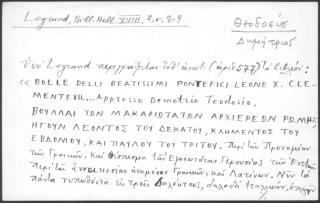 Legrand, Bibl. Hell. XVIII, 2, σ. 8-9
Θεοδοσίου
Δημήτριος
Ὑπὸ Legrand περιγράφεται ὑπ' ἀριθ. (ἀριθ 577) τὸ βιβλίον:
« BOLLE DELLI BEATISSIMI PONTEFICI LEONE X. CLE-
MENTE VII... Appresso Demetrio Teodosio.
ΒΟΥΛΛΑΙ ΤΩΝ ΜΑΚΑΡΙΩΤΑΤΩΝ ΑΡΧΙΕΡΕΩΝ ΡΩΜΗΣ,
ΗΓΟΥΝ ΛΕΟΝΤΟΣ ΤΟΥ ΔΕΚΑΤΟΥ, ΚΛΗΜΕΝΤΟΣ ΤΟΥ
ΕΒΔΟΜΟΥ, ΚΑΙ ΠΑΥΛΟΥ ΤΟΥ ΤΡΙΤΟΥ. Περὶ τῶν Προνομίων
τῶν Γραικῶν. Καὶ Θέσπισμα τῆς Ἐξοχωτάτης Γερουσίας τῶν
Περὶ τῆς ἀναμέσον Γραικῶν, καὶ Λατίνων. Νῦν τὰ
πάντα τυπωθέντα εἰς τρεῖς Διαλέκτους, δηλαδὴ Ἰταλικὴν,